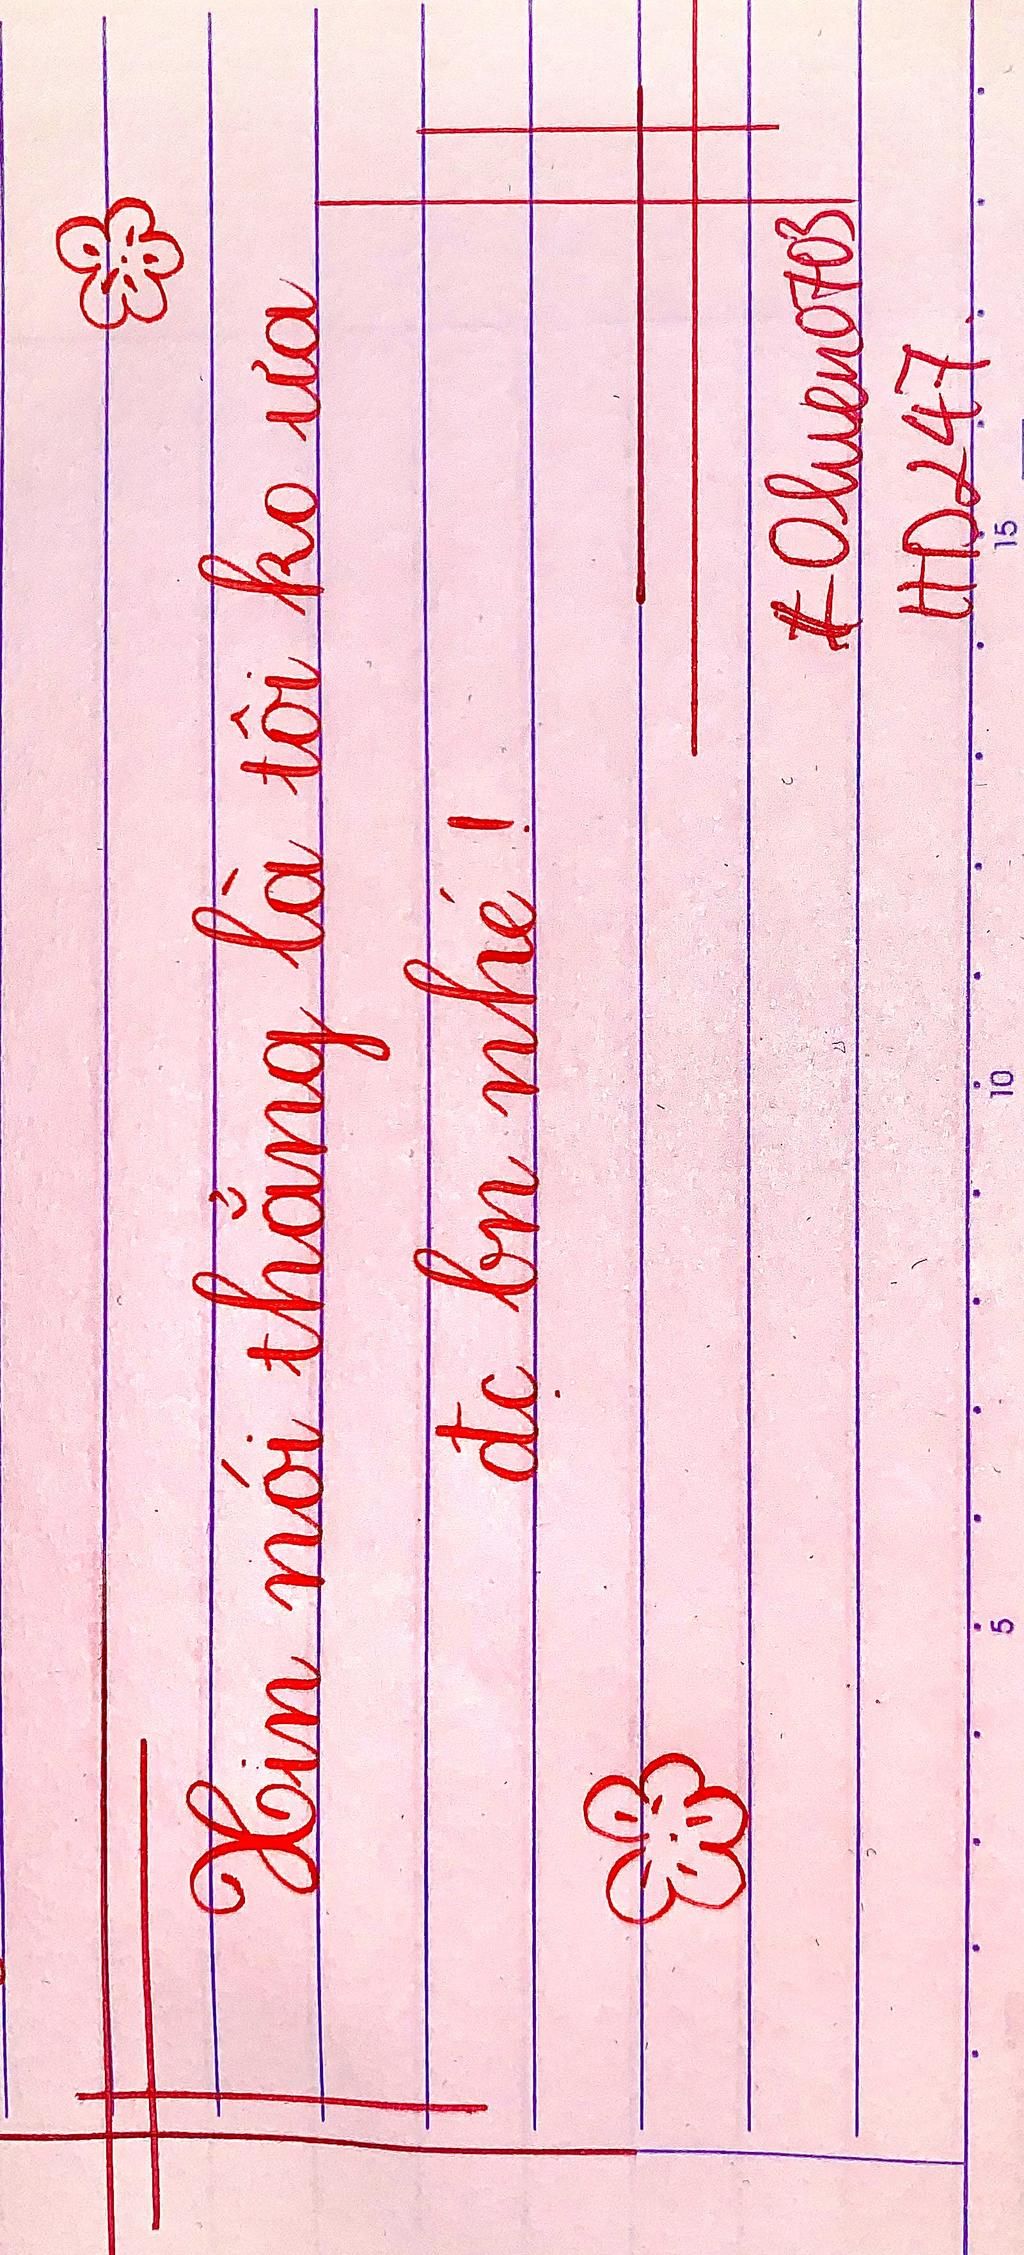 Xin nói thẳng là tôi ko ưa
đc bn nhé!
HD247
5
10
15